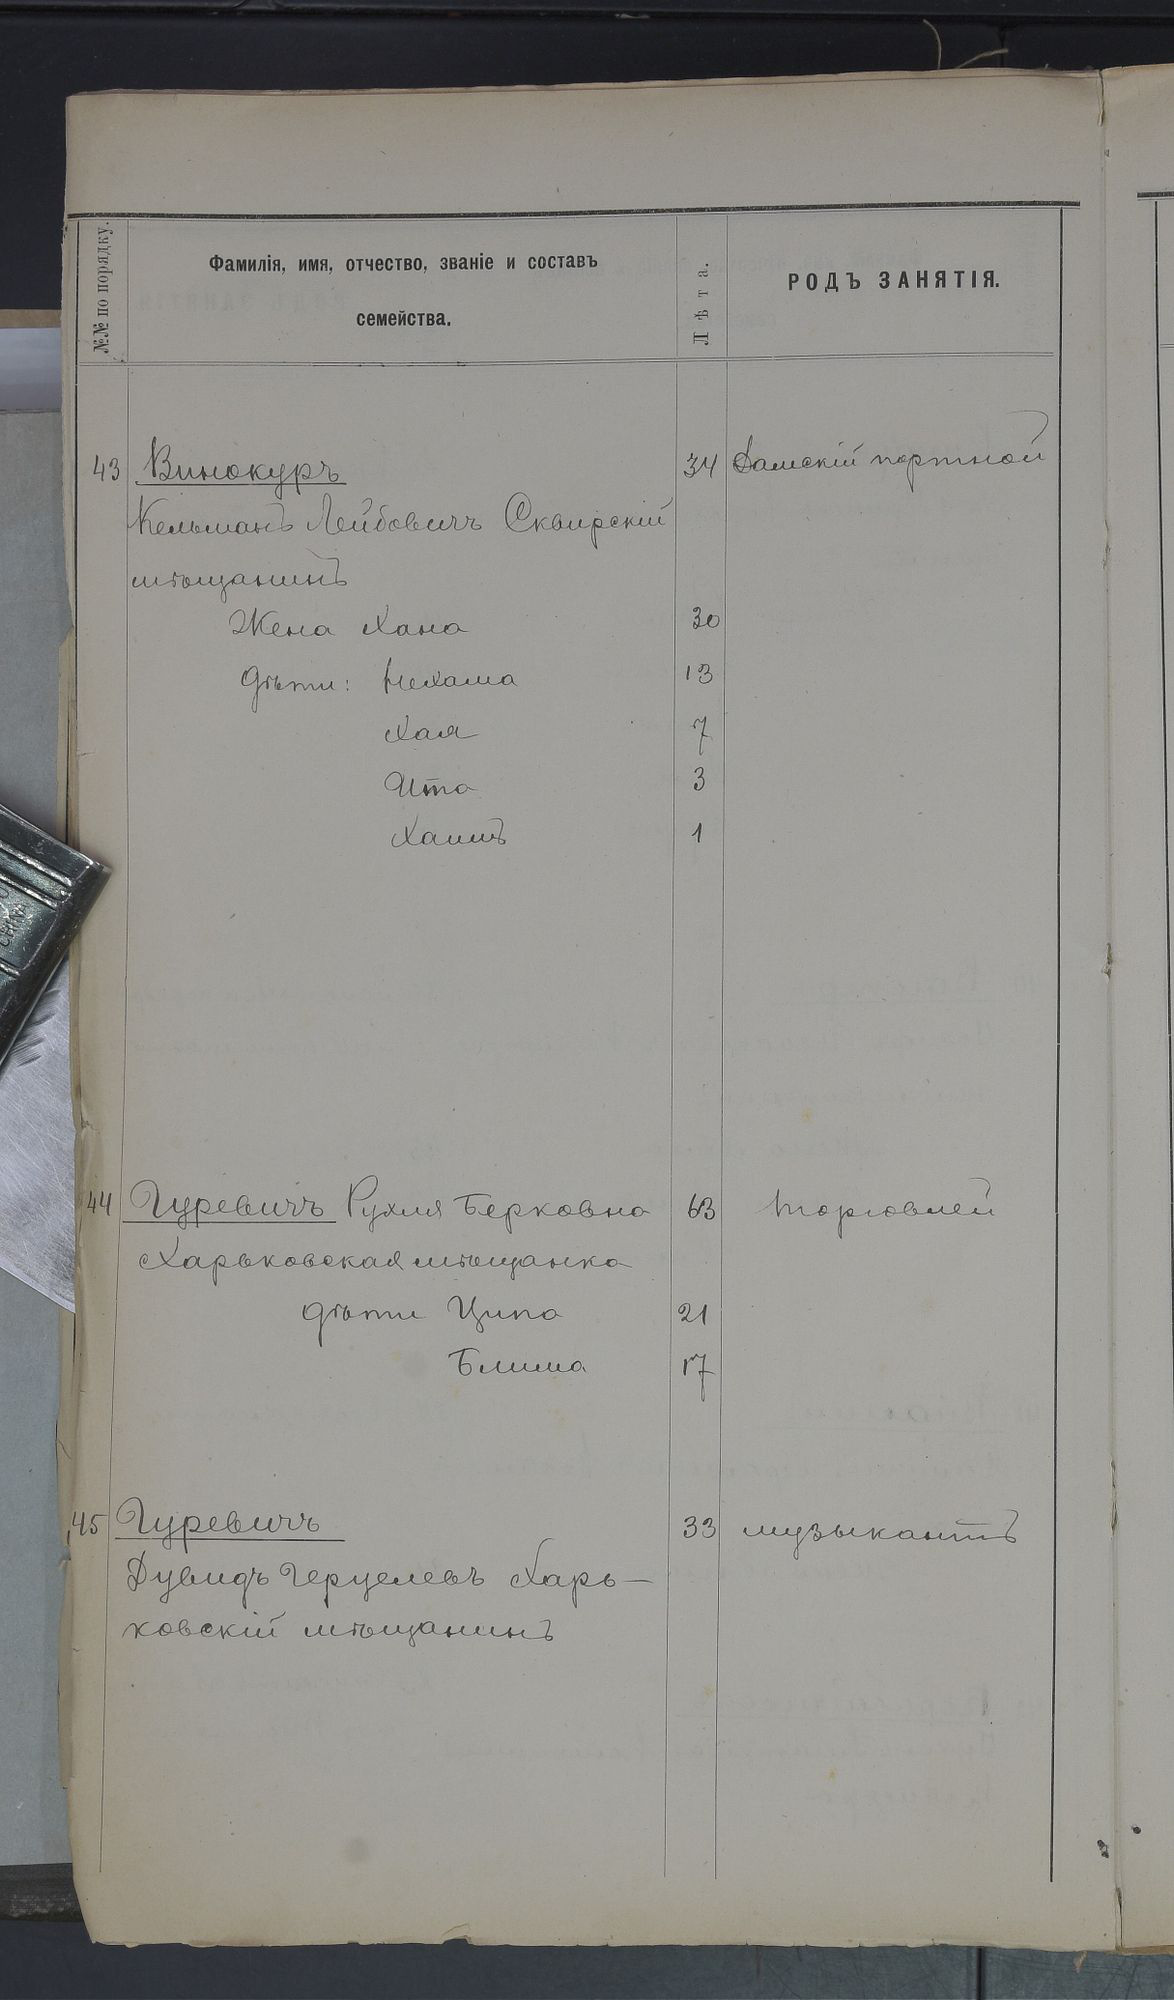 №№ по порядку.
Фамилія, имя, отчество, званіе и составъ
семейства.
Лѣта.
РОДЪ ЗАНЯТІЯ.
43 Винокуръ 34 Дамскій портной
Кельманъ Лейбовичъ Сквирскій
мѣщанинъ
Жена Хана 30
дѣти: Нехама 13
Хая 7
Ита 3
Хаимъ 1
44 Гуревичъ Рухля Берковна 63 торговлей
Харьковская мѣщанка
дѣти Ципа 21
Блима 17
45 Гуревичъ 33 музыкантъ
Дувидъ Герцелевъ Харь-
ковскій мѣщанинъ